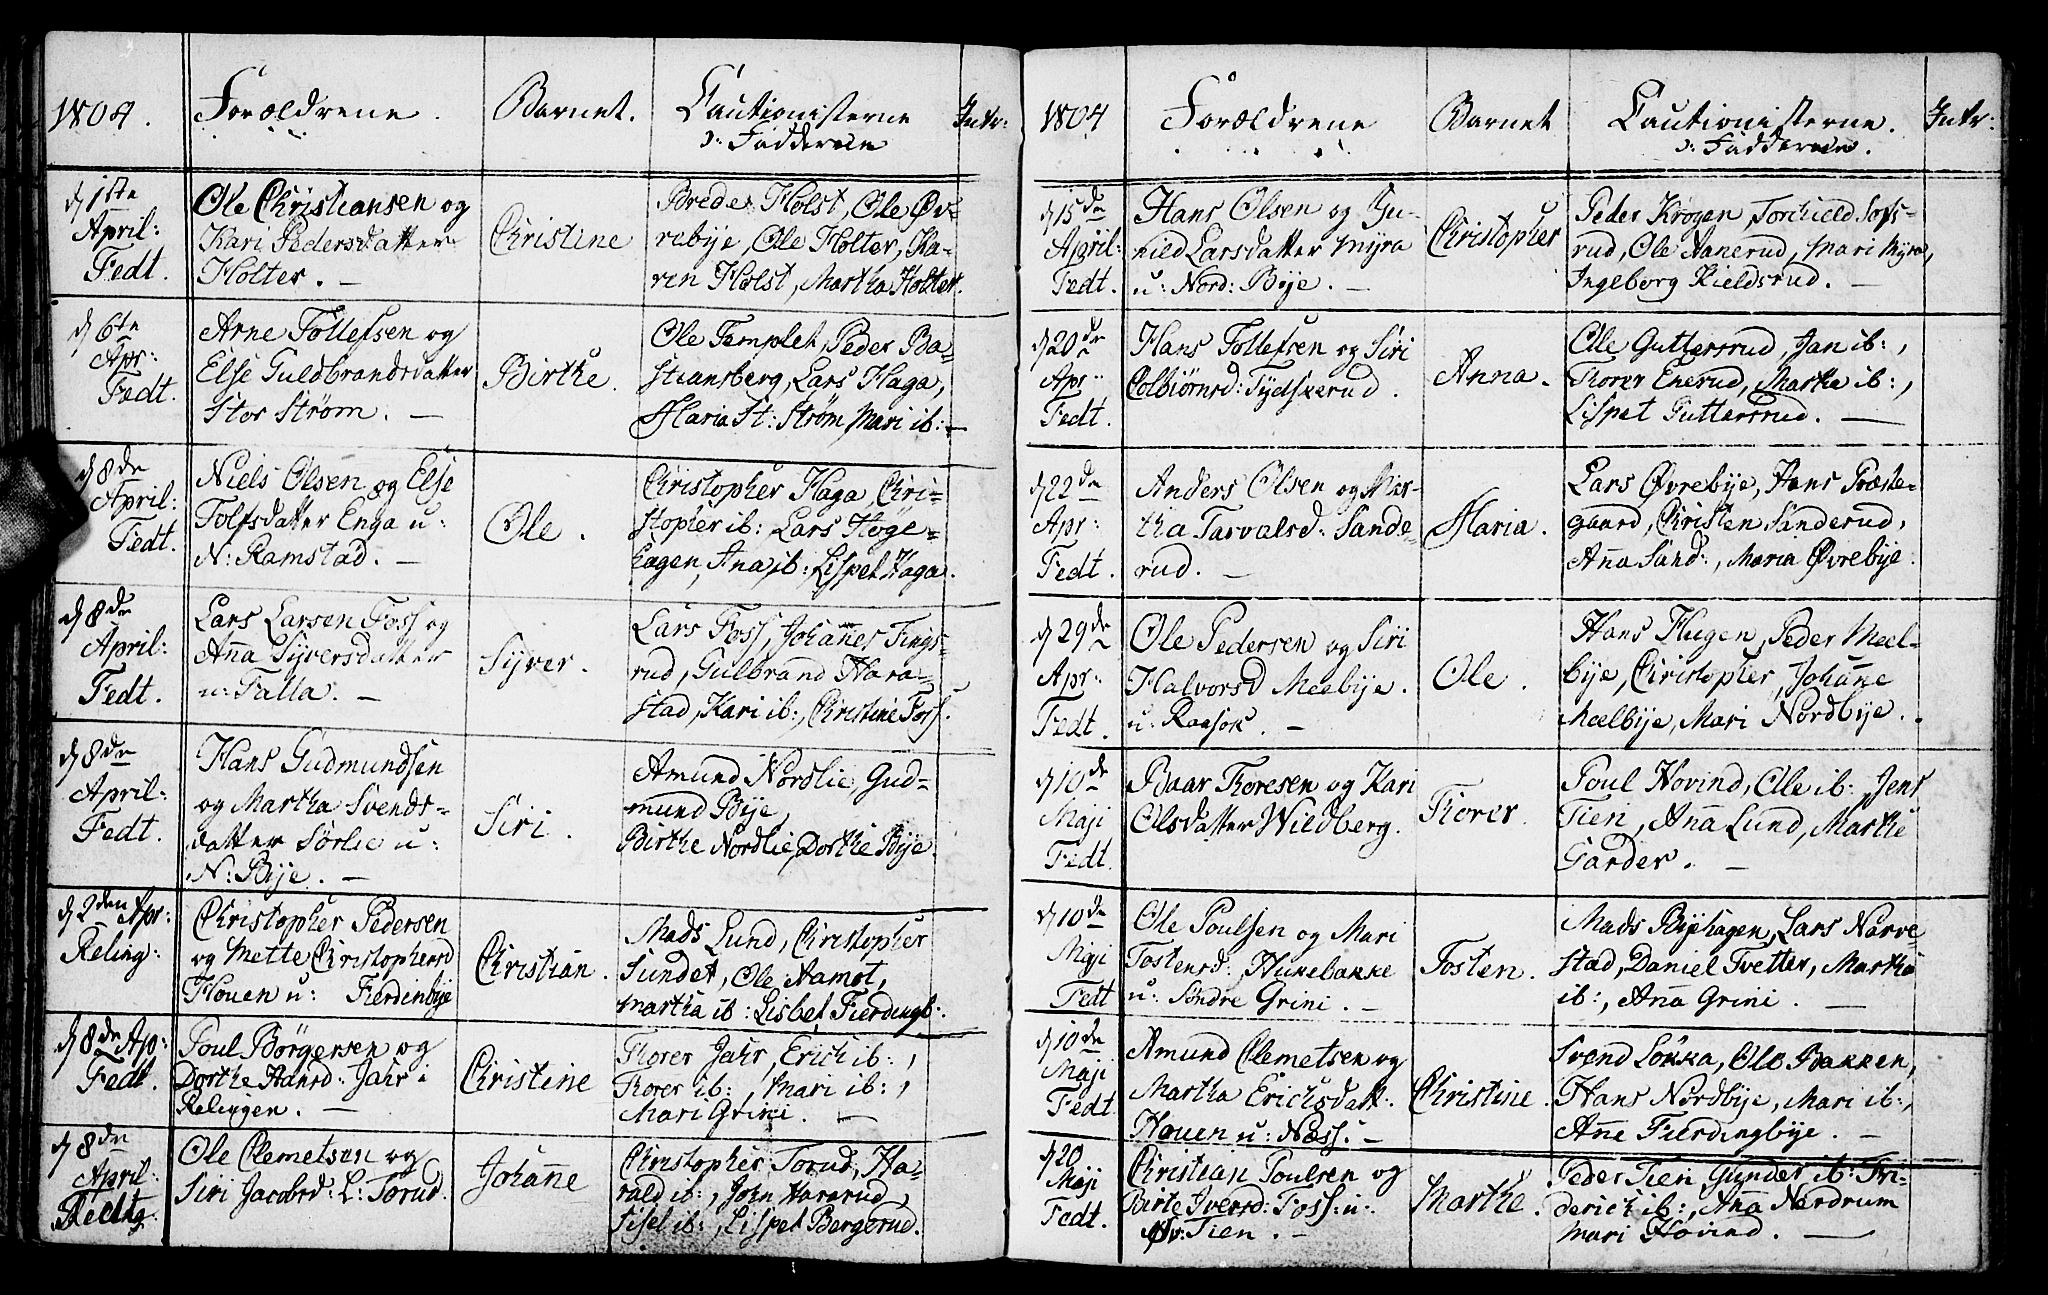 1804.
Forældrene.
Barnet.
Cautionisterne
ɔ: Fadderne
Intr:
d 1ste
April:
Fedt.
Ole Christiansen og
Kari Pedersdatter
Holter. —
Christine
Brede Holst, Ole Øv-
rebye, Ole Holter, Ka-
ren Holst, Martha Holter.
d 6te
Apr:
Fedt.
Arne Tollefsen og
Else Guldbrandsdatter
Stor Strøm. —
Birthe.
Ole Templet, Peder Ba-
stiansberg, Lars Haga,
Maria St: Strøm, Mari ib: —
d 8de
April:
Fedt.
Niels Olsen og Else
Tolfsdatter Enga u:
N: Ramstad. —
Ole.
Christopher Haga, Chri-
stopher ib: Lars Høge-
hagen, Ana ib: Lispet Haga.
d 8de
April:
Fedt.
Lars Larsen Foss og
Anna Syversdatter
u: Falla. —
Syver.
Lars Foss, Johannes Tings-
rud, Gulbrand Hara-
stad, Kari ib:, Christine Foss.
d 8de
April:
Fedt.
Hans Gudmundsen
og Martha Svends-
datter Sørlie u:
N: Bye. —
Siri.
Amund Nordlie, Gud-
mund Bye,
Birthe Nordlie, Dorthe Bye.
d 2den Apr:
Reling:
Christopher Pedersen
og Mette Christophersd
Houen u: Fierdinbye
Christian.
Mads Lund, Christopher
Sundet, Ole Aamot,
Martha ib: Lisbet Fierdingb:.
d 8de Ap:
Fedt.
Poul Børgersen og
Dorthe Hansd: Jahr i
Relingen. —
Christine
Thorer Jahr, Erich ib:,
Thorer ib: Mari ib:,
Mari Grini. —
d 8de
April:
Ole Clemetsen og
Siri Jacobsd: L: Torud.
Johanne
Christopher Torud, Ha-
rald ib:, John Hararud,
Sisel ib:, Lispet Bergerud.
1804
Forældrene
Barnet
Cautionisterne.
ɔ: Fadderne.
Intr:
d 15de
April:
Fedt.
Hans Olsen og Gu-
nild Larsdatter Myra
u: Nord: Bye. —
Christopher
Peder Krogen, Torkield Sofs-
rud, Ole Aanerud, Mari Myra,
Ingeborg Kieldsrud. —
d 20de
Apr:
Fedt.
Hans Tollefsen og Siri
Colbiørnsd: Tydskerud.
Anna.
Ole Guttersrud, Jan ib:,
Thorer Enerud, Martha ib:,
Lispet Guttersrud. —
d 22de
Apr:
Fedt.
Anders Olsen og Mar-
tha Tarvalsd: Sande-
rud. —
Maria.
Lars Øvrebye, Hans Præste-
gaard, Christen Sanderud,
Anna Sand:, Maria Øvrebye.
d 29de
Apr:
Fedt.
Ole Pedersen og Siri
Halvorsd Meebye.
u: Raasok. —
Ole.
Hans Hugen, Peder Meel-
bye, Christopher, Johanne
Meelbye, Mari Nordbye.
d 10de
Maji
Fedt.
Baar Thoresen og Kari
Olsdatter Wildberg.
Thorer.
Poul Hovind, Ole ib: Jens
Tien, Anna Lund, Marthe
Garder. —
d 10de
Maji
Fedt
Ole Poulsen og Mari
Tostensd: Hukebakke
u: Søndre Grini. —
Tosten.
Mads Byehagen, Lars Narve-
stad, Daniel Tvetter, Martha
ib:, Anna Grini. —
d 10de
Maji
Fedt
Amund Clemetsen og
Martha Erichsdatt:
Houen u: Næss: —
Christine.
Svend Løkka, Ole Bakken,
Hans Nordbye, Mari ib:,
Anne Fierdingbye. —
d 20
Maji
Fedt.
Christian Poulsen og
Birte Iversd: Foss: u:
Øv: Tien. —
Marthe.
Peder Tien Gunder ib: Fri-
derich ib:, Anna Nordrum
Mari Hovind. —